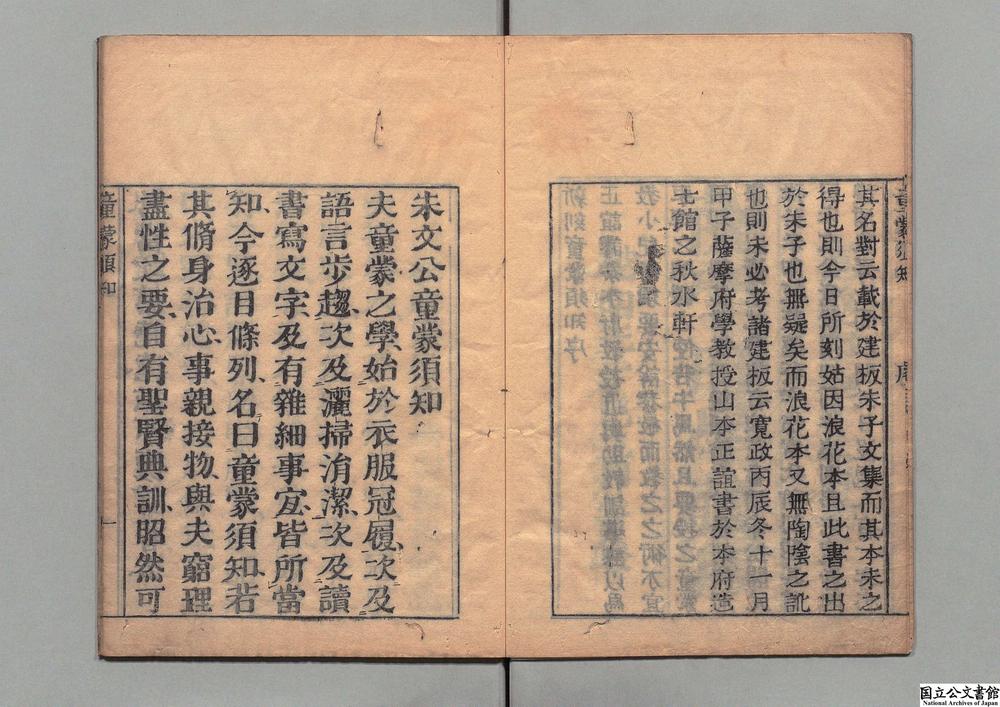 其名對云載於建板朱子文集而其本未之
得也則今日所刻姑因浪花本且此書之出
於朱子也無疑矣而浪花本又無陶陰之訛
也則未必考諸建板云寬政丙辰冬十一月
甲子薩摩府學教授山本正誼書於本府造
士館之秋水軒
童蒙須知
序
朱文公童蒙須知
夫童蒙之學始於衣服冠履次及
語言步趨次及灑掃涓潔次及讀
書寫文字及有雜細事宜皆所當
知今逐目條列名曰童蒙須知若
其脩身治心事親接物與夫窮理
盡性之要自有聖賢典訓昭然可
童蒙須知
一
国立公文書館
National Archives of Japan